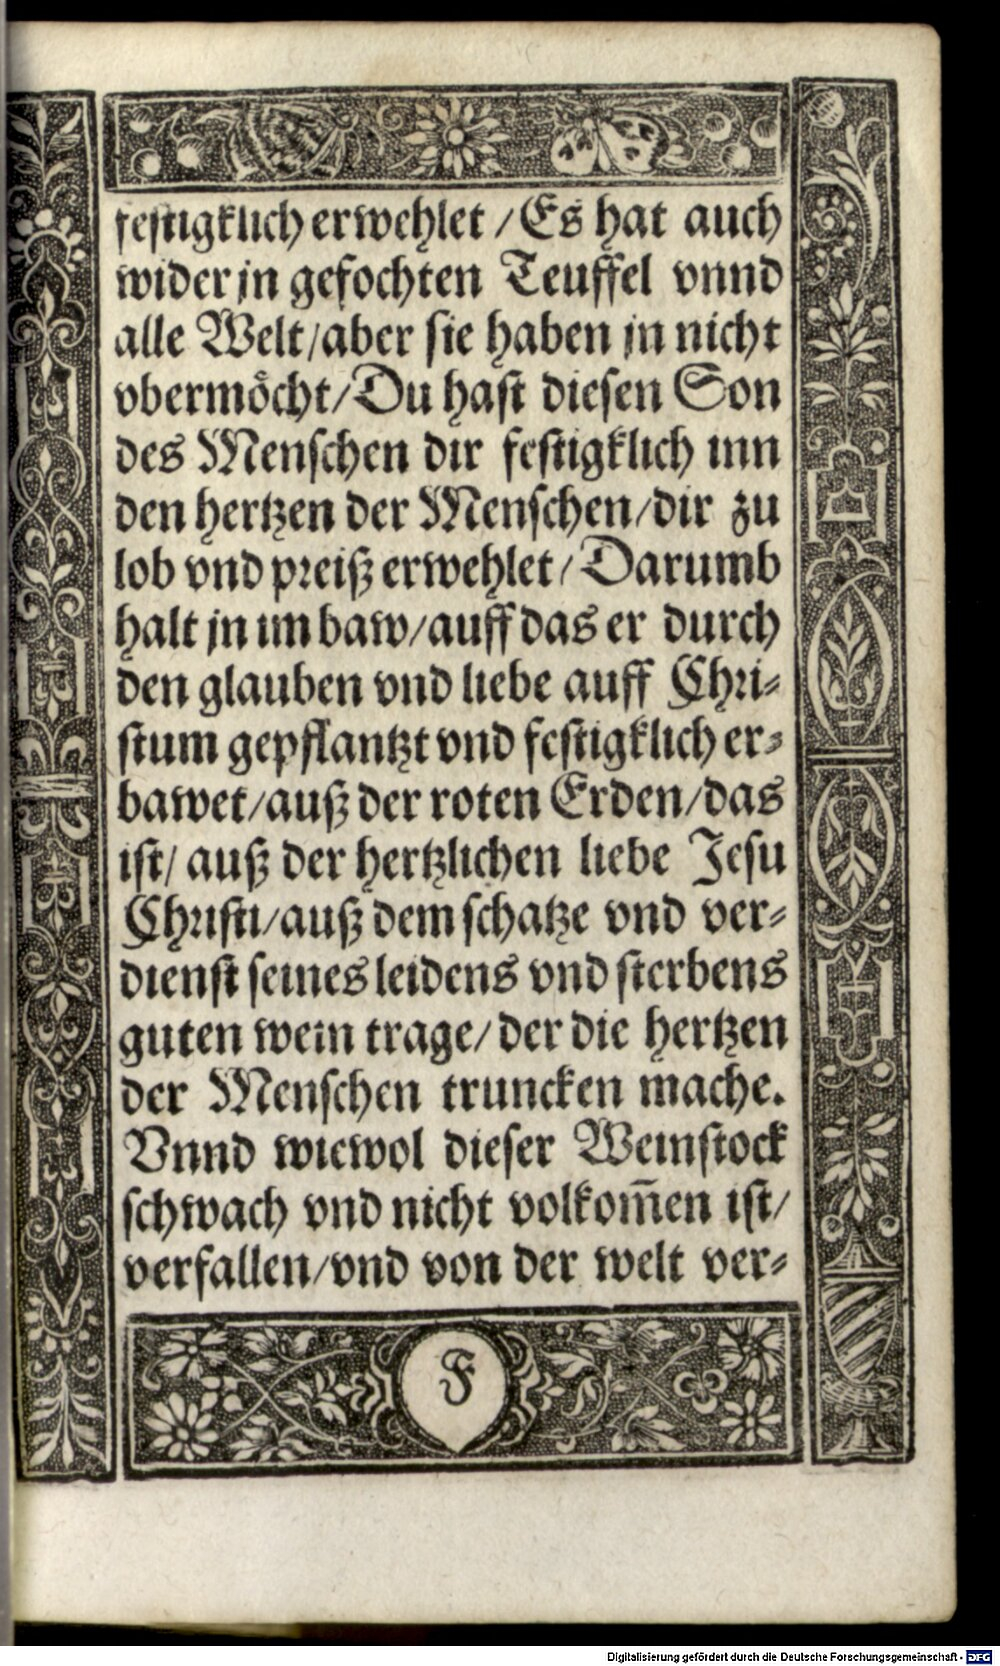 festigklich erwehlet / Es hat auch
wider jn gefochten Teuffel vnnd
alle Welt / aber sie haben jn nicht
vbermöcht / Du hast diesen Son
des Menschen dir festigklich inn
den hertzen der Menschen / dir zu
lob vnd preiß erwehlet / Darumb
halt jn im baw / auff das er durch
den glauben vnd liebe auff Chri-
stum gepflantzt vnd festigklich er-
bawet / auß der roten Erden / das
ist / auß der hertzlichen liebe Jesu
Christi / auß dem schatze vnd ver-
dienst seines leidens vnd sterbens
guten wein trage / der die hertzen
der Menschen truncken mache.
Vnnd wiewol dieser Weinstock
schwach vnd nicht volkom̅en ist /
verfallen / vnd von der welt ver-
F
Digitalisierung gefördert durch die Deutsche Forschungsgemeinschaft - DFG